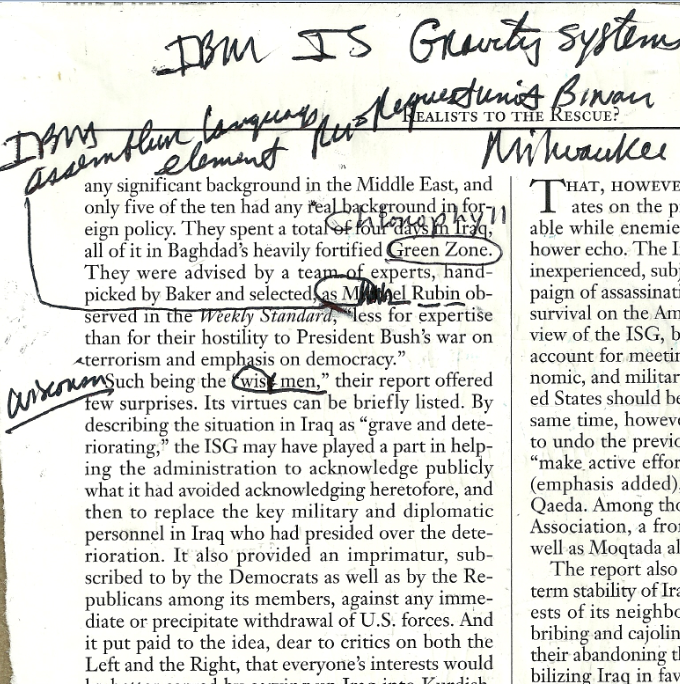 IBM IS Gravity Systems
IBM
assembly language
element
Request unit
REALISTS TO THE RESCUE?
Milwaukee
any significant background in the Middle East, and
only five of the ten had any real background in for-
eign policy. They spent a total of four days in Iraq,
all of it in Baghdad's heavily fortified Green Zone.
They were advised by a team of experts, hand-
picked by Baker and selected, as Michael Rubin ob-
served in the Weekly Standard, "less for expertise
than for their hostility to President Bush's war on
terrorism and emphasis on democracy."
wisconsin
Such being the "wise men," their report offered
few surprises. Its virtues can be briefly listed. By
describing the situation in Iraq as "grave and dete-
riorating," the ISG may have played a part in help-
ing the administration to acknowledge publicly
what it had avoided acknowledging heretofore, and
then to replace the key military and diplomatic
personnel in Iraq who had presided over the dete-
rioration. It also provided an imprimatur, sub-
scribed to by the Democrats as well as by the Re-
publicans among its members, against any imme-
diate or precipitate withdrawal of U.S. forces. And
it put paid to the idea, dear to critics on both the
Left and the Right, that everyone's interests would
THAT, HOWEVE
ates on the p
able while enemie
hower echo. The I
inexperienced, subj
paign of assassinati
survival on the Am
view of the ISG, b
account for meetin
nomic, and militar
ed States should be
same time, howeve
to undo the previo
"make active effor
(emphasis added),
Qaeda. Among tho
Association, a fro
well as Moqtada al
The report also
term stability of Ira
ests of its neighbo
bribing and cajolin
their abandoning th
bilizing Iraq in fav